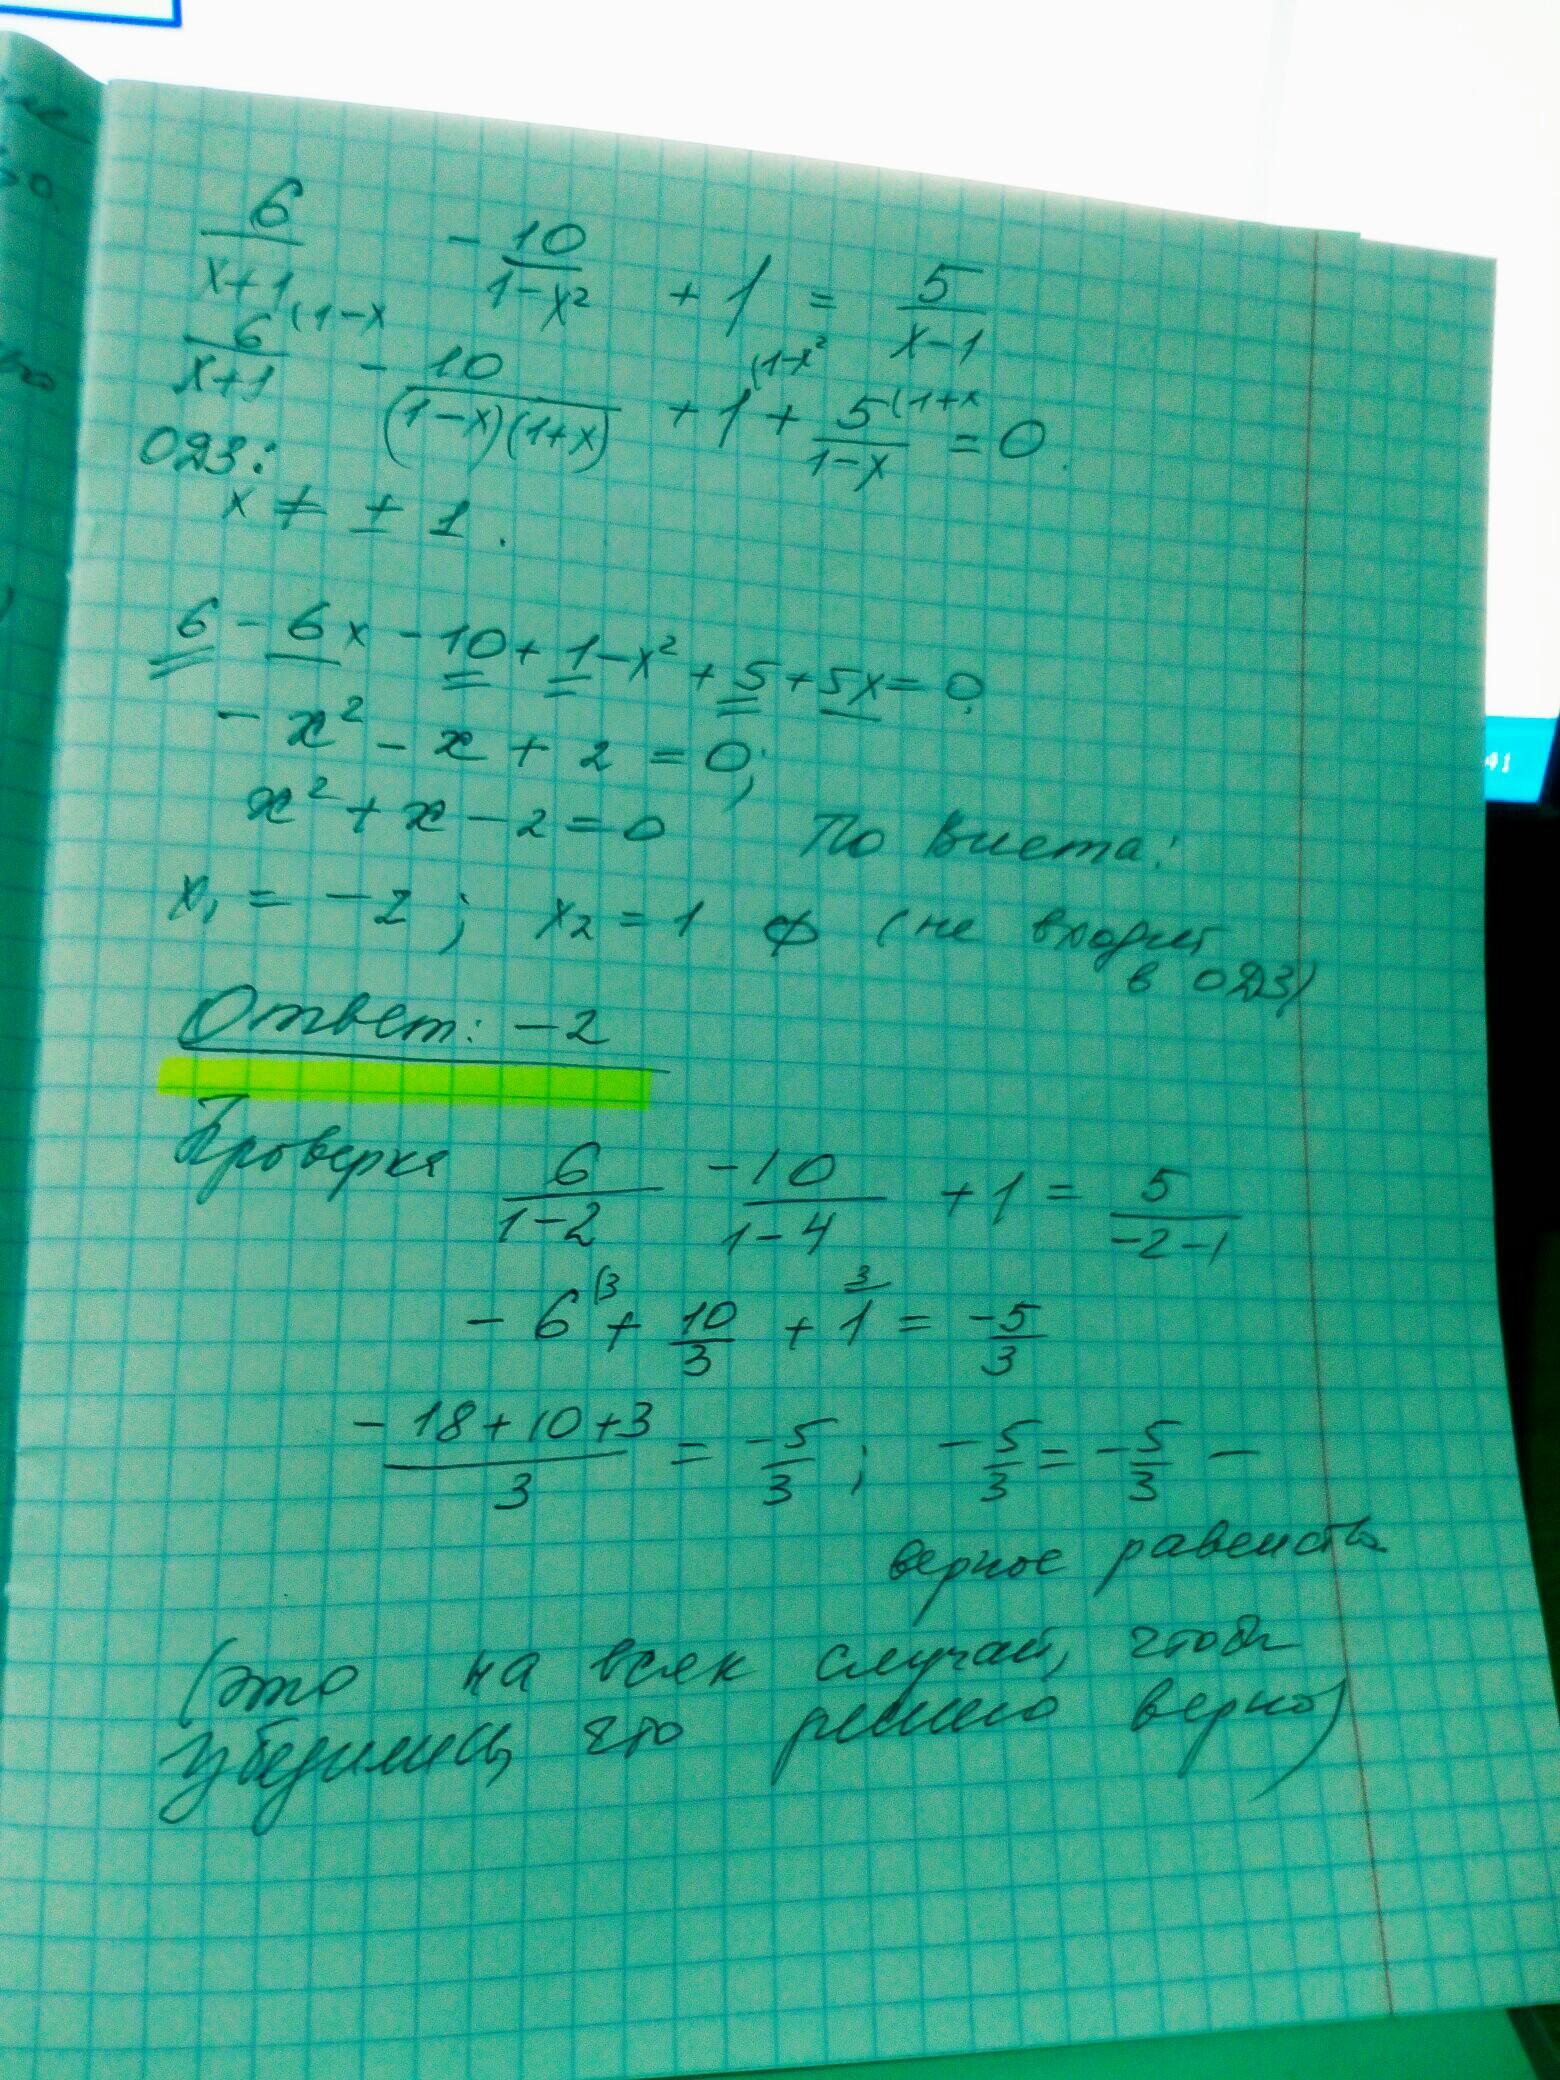 6/(x+1) - 10/(1-x²) + 1 = 5/(x-1)
6/(x+1) (1-x - 10/((1-x)(1+x)) + 1 (1-x² + 5/(1-x) (1+x = 0.
ОДЗ:
x ≠ ± 1.
6 - 6x - 10 + 1 - x² + 5 + 5x = 0
- x² - x + 2 = 0;
x² + x - 2 = 0 По Виета:
x₁ = -2; x₂ = 1 ф (не входит
в ОДЗ)
Ответ: -2
Проверка 6/(1-2) - 10/(1-4) + 1 = 5/(-2-1)
- 6 (3 + 10/3 + 1 3 = -5/3
(-18+10+3)/3 = -5/3; -5/3 = -5/3 -
верное равенство
(это на всяк случай, чтобы
убедились, что решено верно)
41